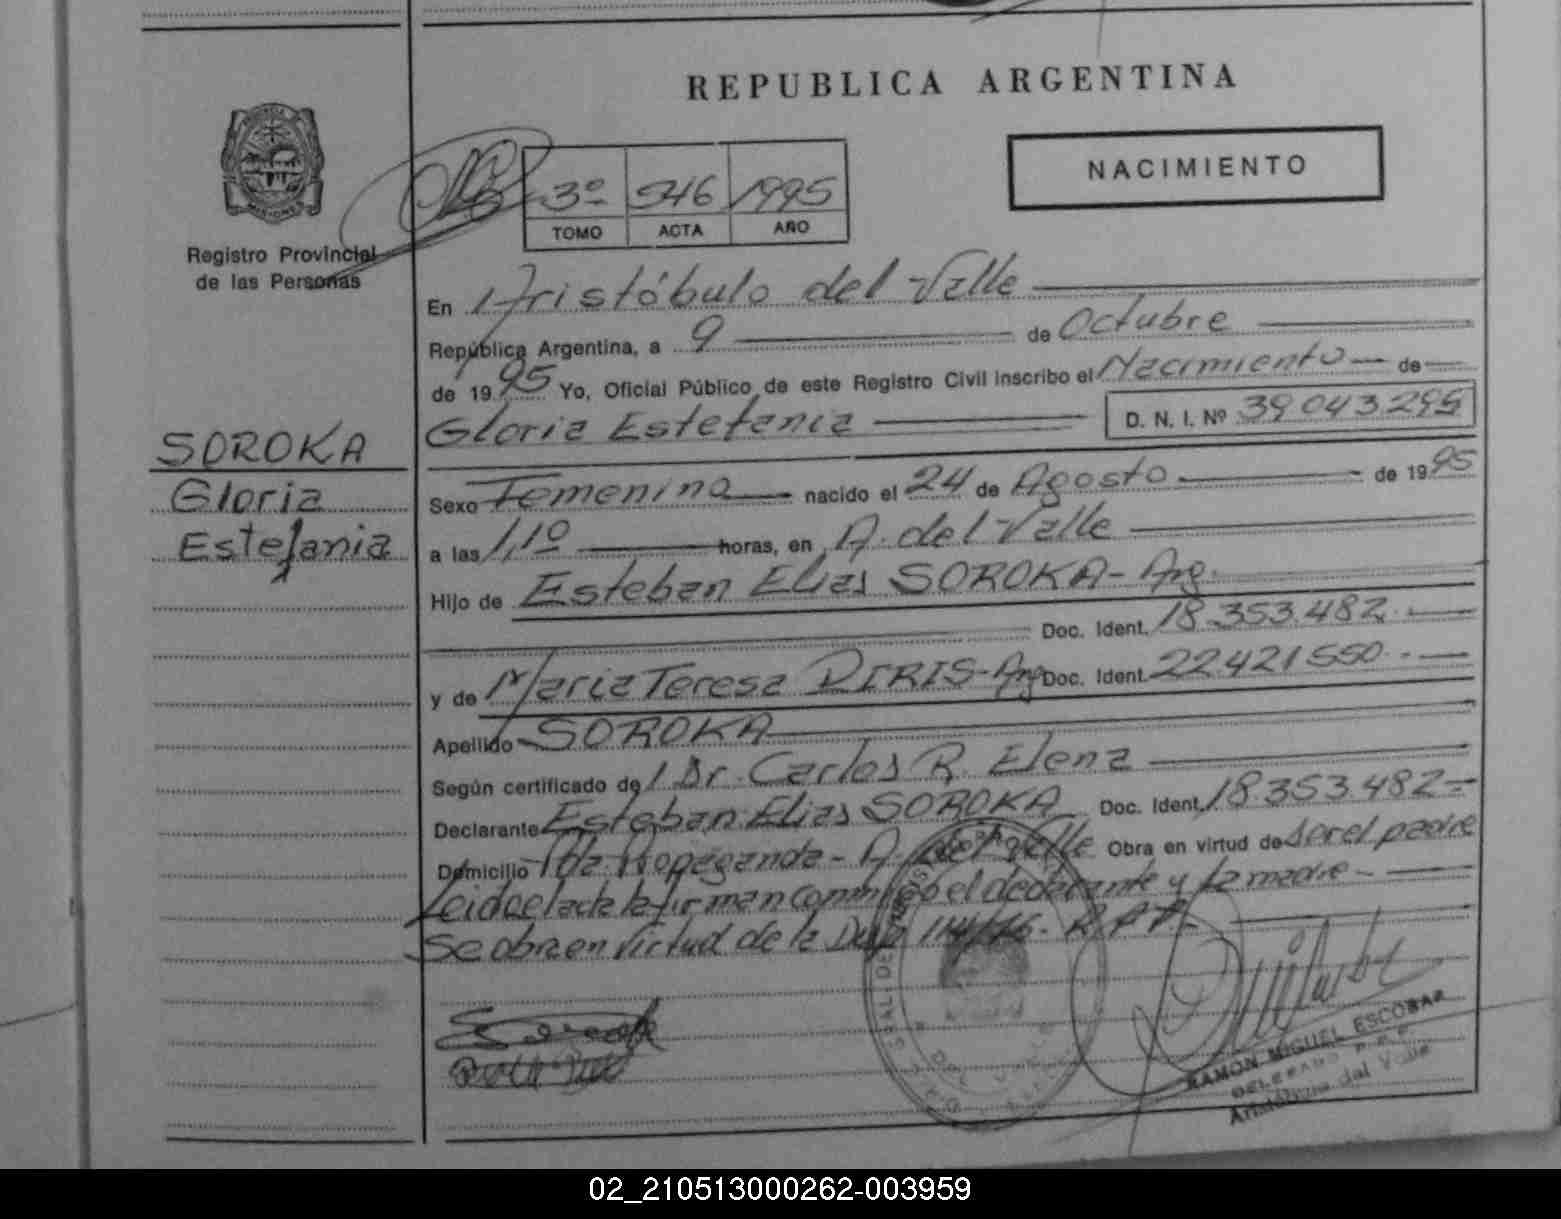 REPUBLICA ARGENTINA
NACIMIENTO
3º 546 1995
TOMO ACTA AÑO
Registro Provincial
de las Personas
En Aristóbulo del Valle
República Argentina, a 9 de Octubre
de 1995 Yo, Oficial Público de este Registro Civil inscribo el Nacimiento de
Gloria Estefania D. N. I. Nº 39043295
SOROKA
Gloria
Estefania
Sexo Femenino nacido el 24 de Agosto de 1995
a las 11,10 horas, en A. del Valle
Hijo de Esteban Elias SOROKA - Arg.
Doc. Ident. 18.353.482.
y de Maria Teresa Doc. Ident. 22.421550.
Apellido SOROKA
Según certificado de Dr. Carlos R. Elena
Declarante Esteban Elias SOROKA Doc. Ident. 18.353.482
Domicilio Propaganda - A. del Valle Obra en virtud de ser el padre
Leida el acta la firman conmigo el declarante y la madre
Se obra en virtud de la
RAMON MIGUEL ESCOBAR
DELEGADO
Aristóbulo del Valle
02_210513000262-003959